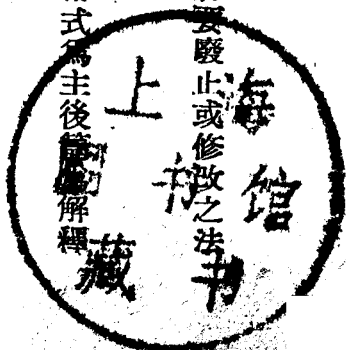 要廢止或修改之法
式爲主後解釋
上海
书馆
藏书